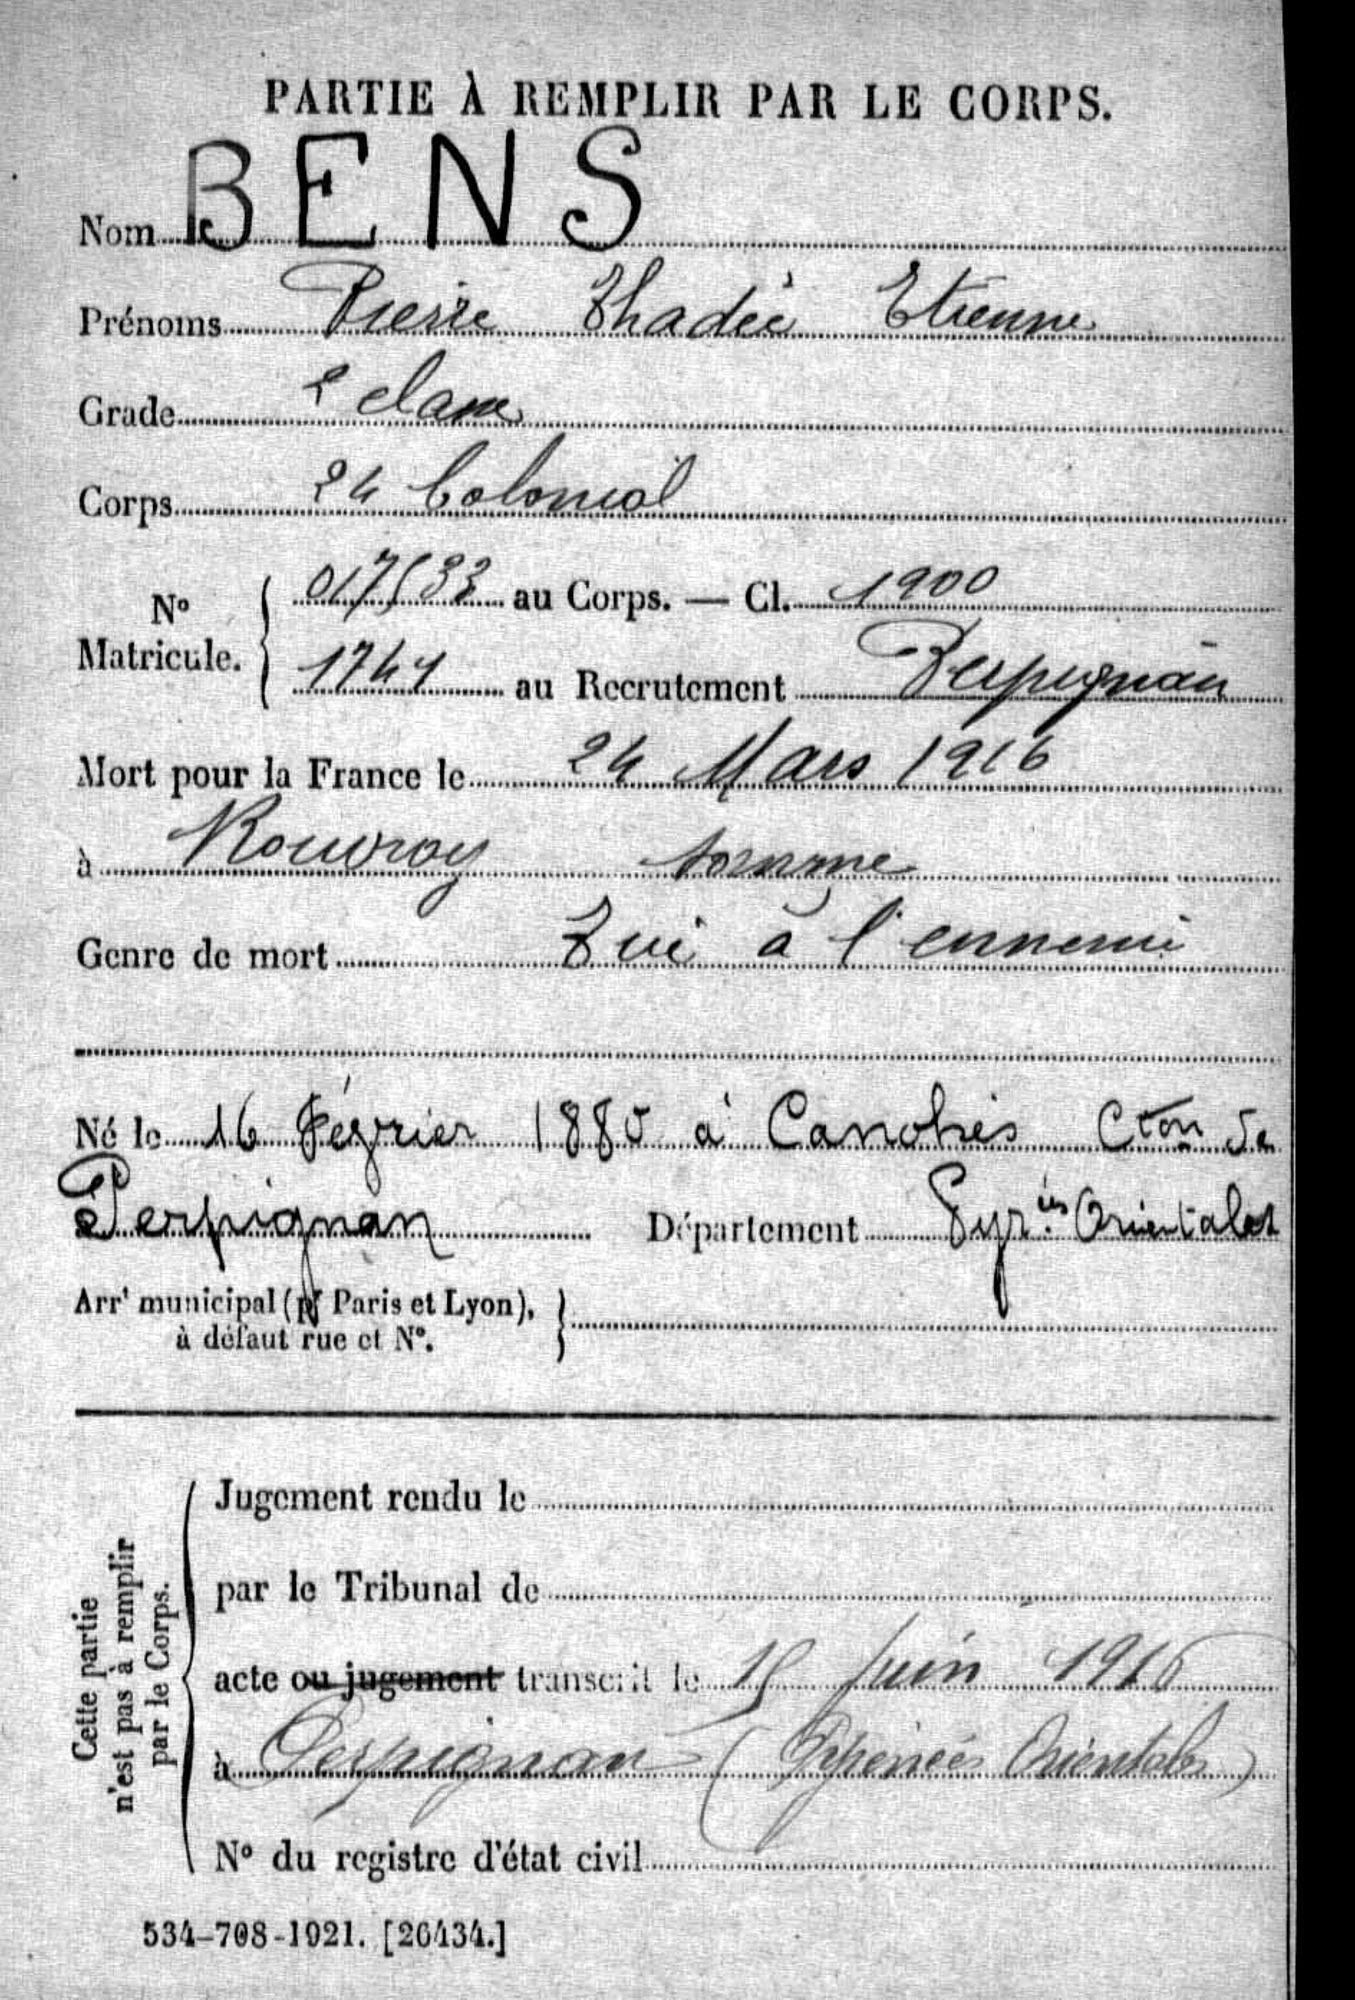 PARTIE À REMPLIR PAR LE CORPS.
Nom BENS
Prénoms Pierre Thadée Etienne
Grade 2 classe
Corps 24 Colonial
N° Matricule. 017533 au Corps. — Cl. 1900
1741 au Recrutement Perpignan
Mort pour la France le 24 Mars 1916
à Rouvroy somme
Genre de mort Tué à l'ennemi
Né le 16 Février 1880 à Canohès Cton de
Perpignan Département Pyr.ées Orientales
Arrt municipal (pr Paris et Lyon),
à défaut rue et N°.
Cette partie
n'est pas à remplir
par le Corps.
Jugement rendu le
par le Tribunal de
acte ou jugement transcrit le 15 Juin 1916
à Perpignan (Pyrénées Orientales)
N° du registre d'état civil
534-708-1921. [26434.]